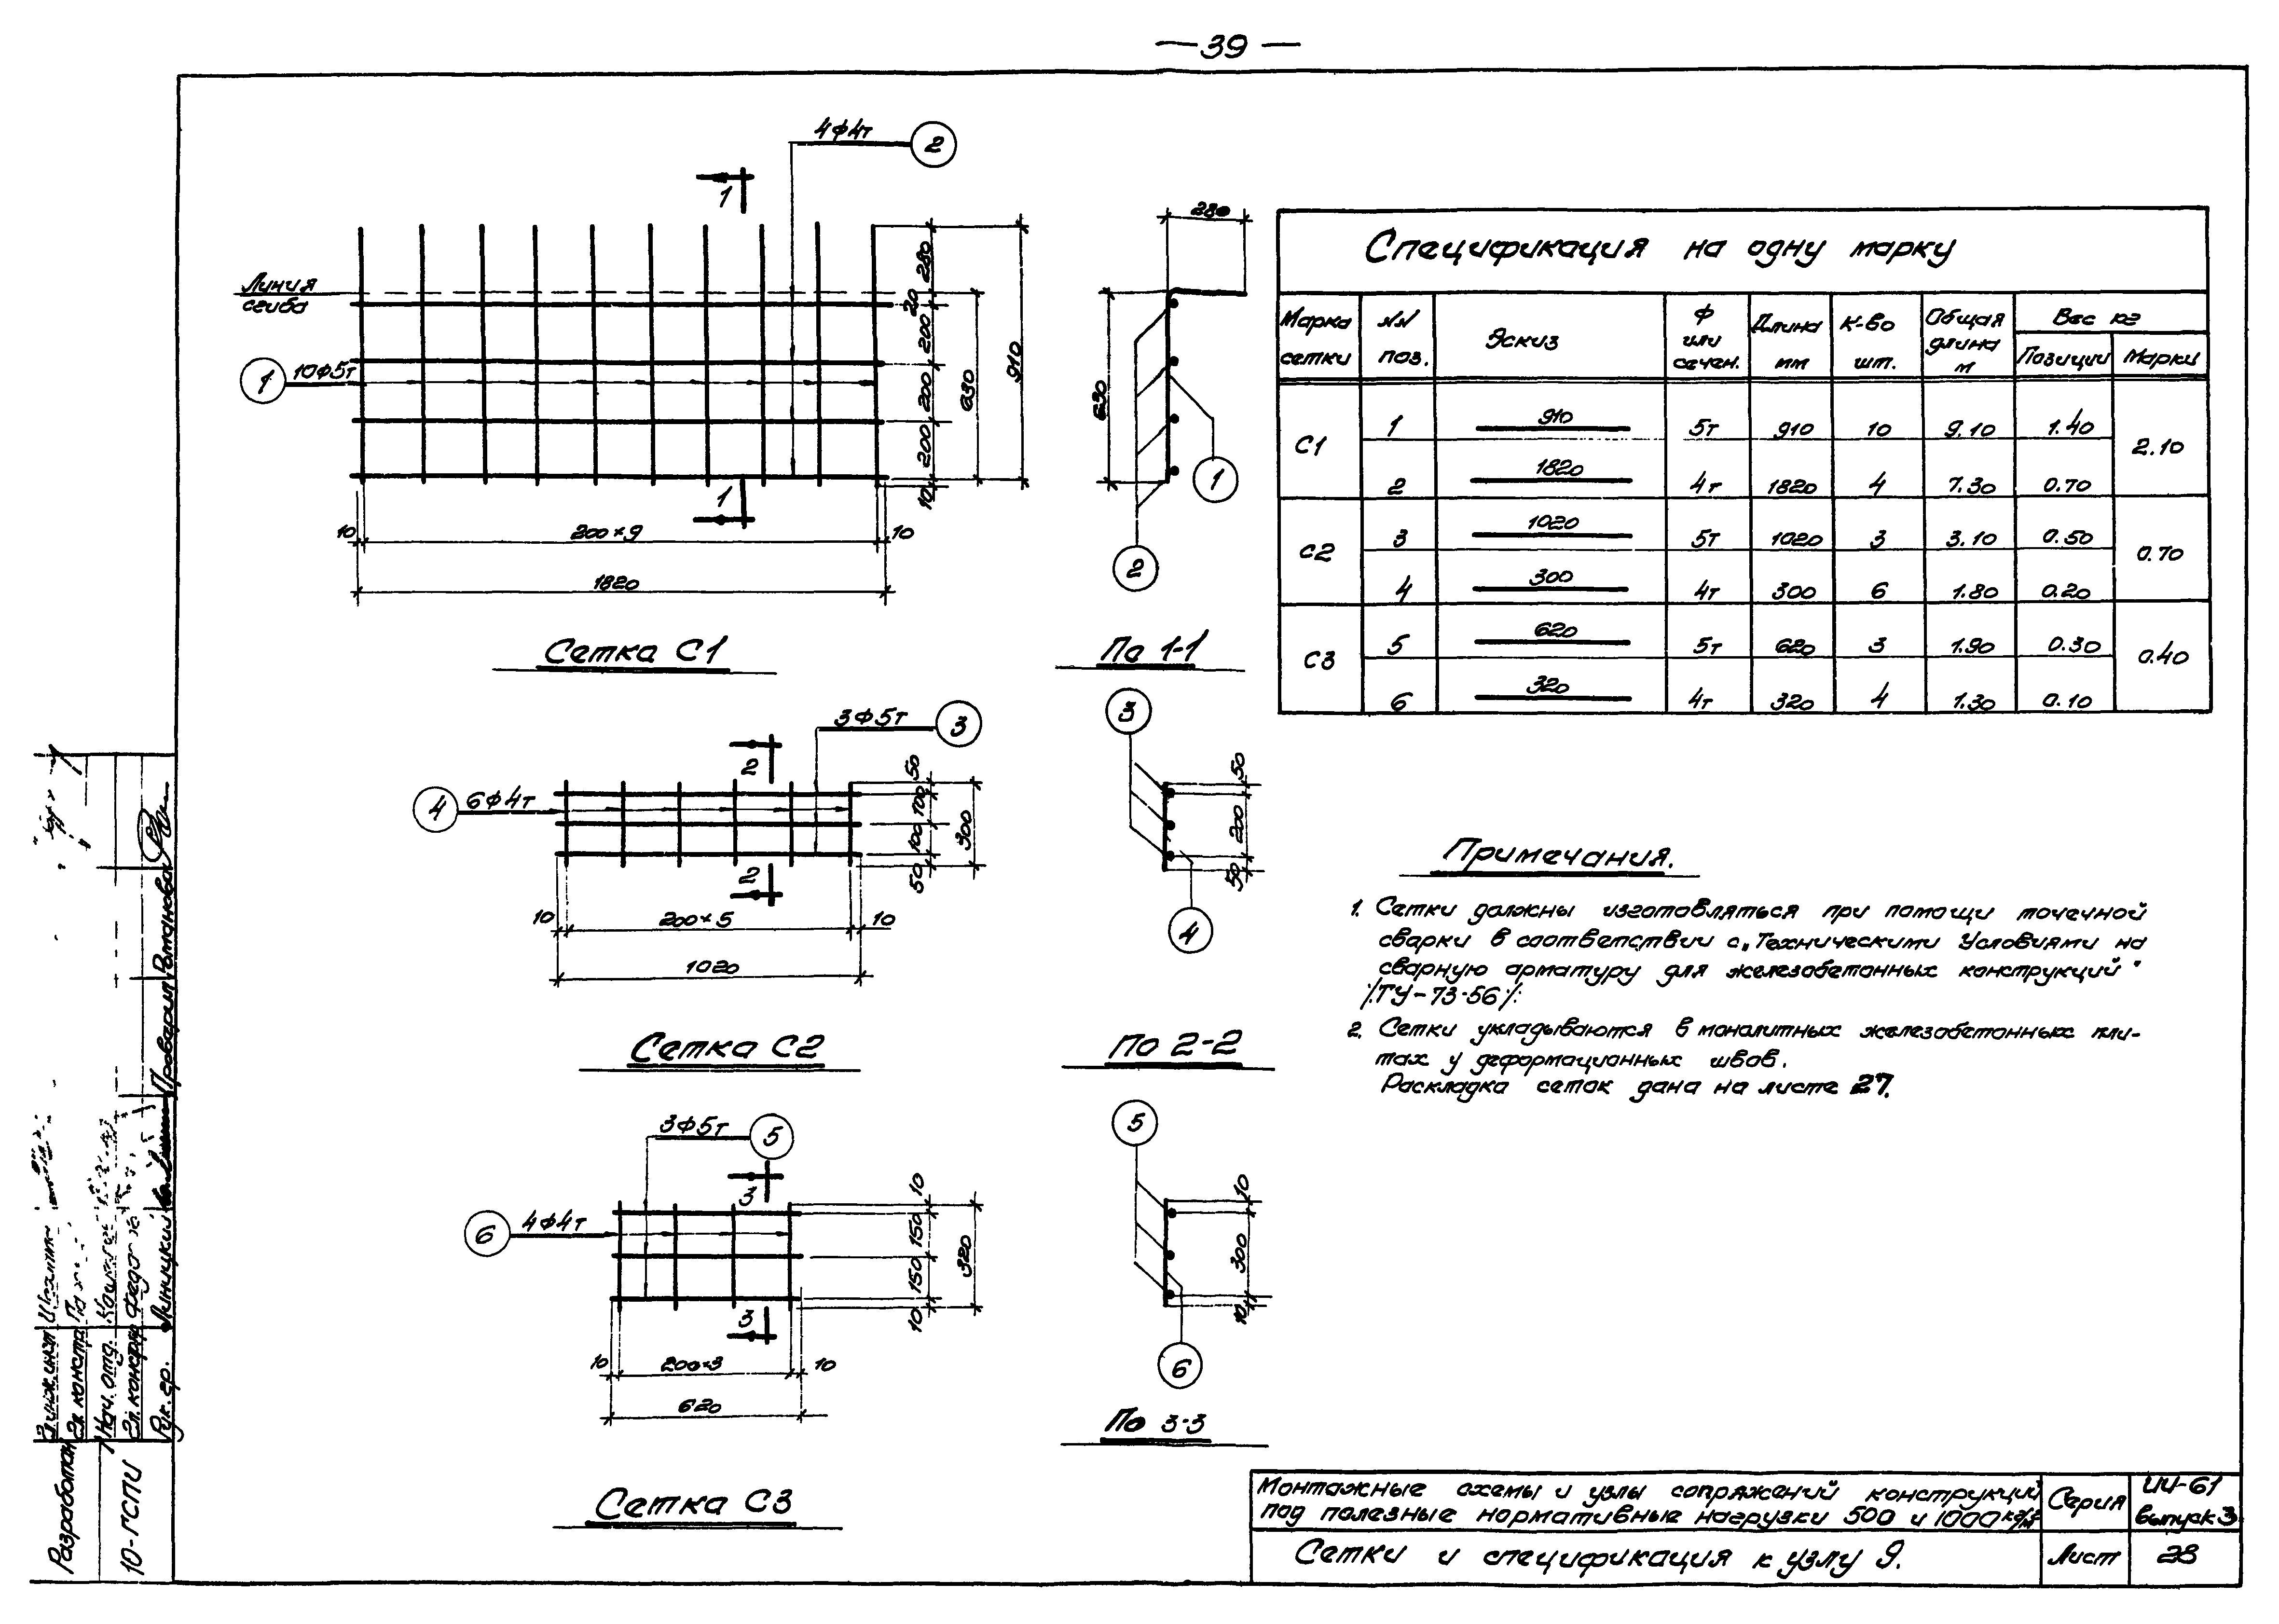 — 39 —
4ф4т
2
1
Линия
сгиба
1
10ф5т
280
20
200
200
200
10
630
910
1
10
200×9
10
1820
Сетка С1
280
630
1
2
По 1-1
Спецификация на одну марку
Марка сетки
NN поз.
Эскиз
Ф или сечен.
Длина мм
К-во шт.
Общая длина м
Вес кг
Позиции
Марки
С1
1 910 5т 910 10 9.10 1.40
2.10
2 1820 4т 1820 4 7.30 0.70
С2
3 1020 5т 1020 3 3.10 0.50
0.70
4 300 4т 300 6 1.80 0.20
С3
5 620 5т 620 3 1.90 0.30
0.40
6 320 4т 320 4 1.30 0.10
3ф5т
3
2
4
6ф4т
50
100
100
50
300
2
10
200×5
10
1020
Сетка С2
3
50
200
50
4
По 2-2
3ф5т
5
3
6
4ф4т
10
150
150
10
320
3
10
200×3
10
620
Сетка С3
5
10
300
10
6
По 3-3
Примечания.
1. Сетки должны изготовляться при помощи точечной
сварки в соответствии с „Техническими Условиями на
сварную арматуру для железобетонных конструкций"
/:ТУ-73-56/:
2. Сетки укладываются в монолитных железобетонных пли-
тах у деформационных швов.
Раскладка сеток дана на листе 27.
Монтажные схемы и узлы сопряжений конструкций
под полезные нормативные нагрузки 500 и 1000 кг/м²
Серия
ИИ-61
выпуск 3
Сетки и спецификация к узлу 9.
Лист
28
Разработан
10-ГСПИ
Гл. констр.
Нач. отд.
Гл. констр.
Рук. гр.
Линицкий
Проверил
Романова